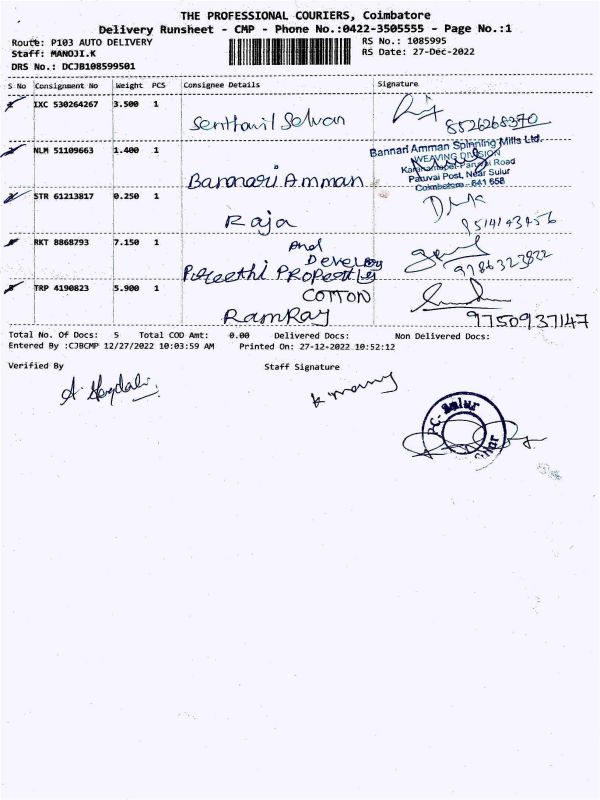 THE PROFESSIONAL COURIERS, Coimbatore
Delivery Runsheet - CMP - Phone No.:0422-3505555 - Page No.:1
Route: P103 AUTO DELIVERY
Staff: MANOJI.K
DRS No.: DCJB108599501
RS No.: 1085995
RS Date: 27-Dec-2022
S No Consignment No Weight PCS Consignee Details Signature
1 IXC 530264267 3.500 1 Senthamil Selvan 8526268370
NLM 51109663 1.400 1 Bannari Amman
Bannari Amman Spinning Mills Ltd.
WEAVING DIVISION
Karanampet-Paruvai Road
Paruvai Post, Near Sulur
Coimbatore - 641 658
STR 61213817 0.250 1 Raja 9514143456
RKT 8868793 7.150 1 Preethi Properties And Develop 9786323822
TRP 4190823 5.900 1 RamRay COTTON 9750937147
Total No. Of Docs: 5 Total COD Amt: 0.00 Delivered Docs: Non Delivered Docs:
Entered By :CJBCMP 12/27/2022 10:03:59 AM Printed On: 27-12-2022 10:52:12
Verified By Staff Signature
PC- Sulur